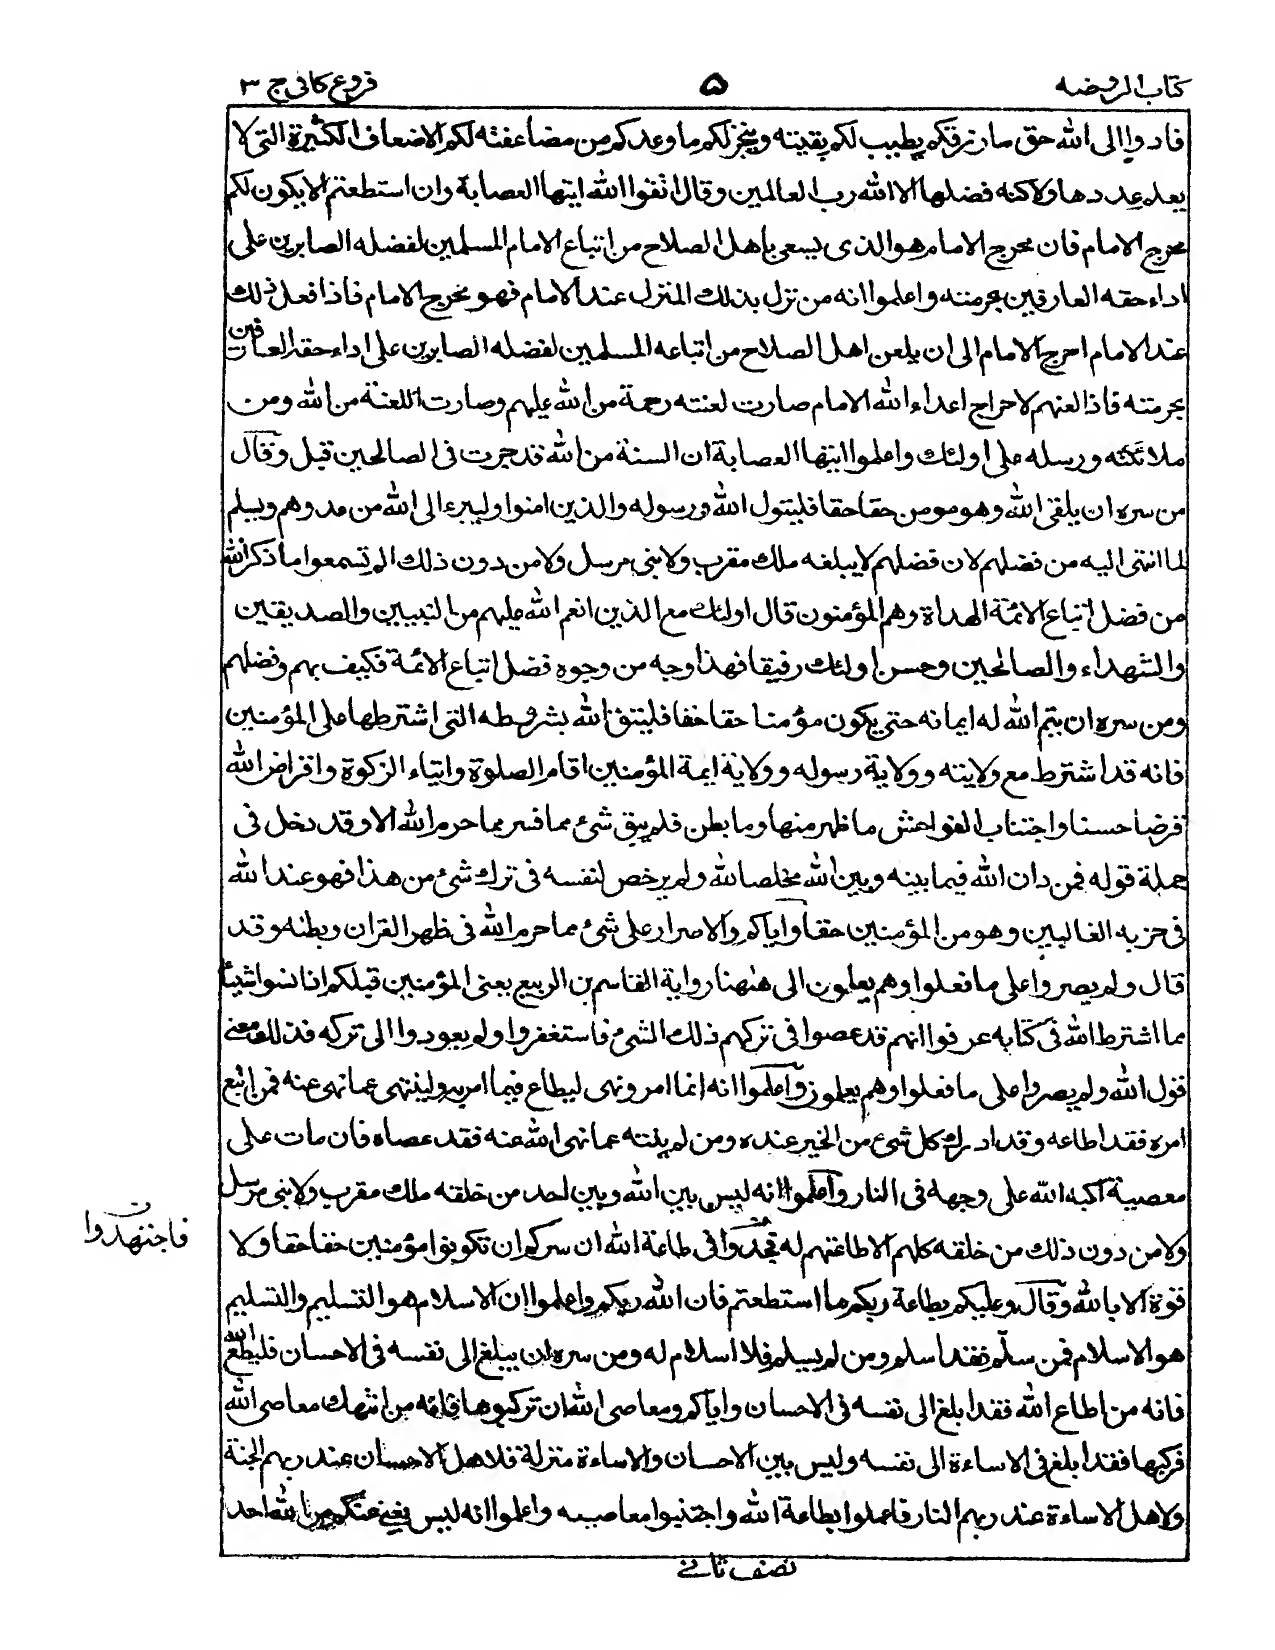 كتاب الروضه
۵
فروع كافى ج ۳
فادوا الى الله حق ما رزقكم يطيب لكم بقيته وينجز لكم ما وعدكم من مضاعفته لكم الاضعاف الكثيرة التى لا
يعلم عددها ولا كنه فضلها الا الله رب العالمين وقال اتقوا الله ايتها العصابة وان استطعتم الا يكون لكم
محرج الامام فان محرج الامام هو الذى يسعى باهل الصلاح من اتباع الامام المسلمين لفضله الصابرين على
اداء حقه العارفين بحرمته واعلموا انه من نزل بذلك المنزل عند الامام فهو محرج الامام فاذا فعل ذلك
عند الامام احرج الامام الى ان يلعن اهل الصلاح من اتباعه المسلمين لفضله الصابرين على اداء حقه العارفين
بحرمته فاذا لعنهم لاحراج اعداء الله الامام صارت لعنته رحمة من الله عليهم وصارت اللعنة من الله ومن
ملائكته ورسله على اولئك واعلموا ايتها العصابة ان السنة من الله قد جرت فى الصالحين قبل وقال
من سره ان يلقى الله وهو مومن حقا حقا فليتول الله ورسوله والذين امنوا وليبرء الى الله من عدوهم ويسلم
لما انتهى اليه من فضلهم لان فضلهم لا يبلغه ملك مقرب ولا نبى مرسل ولا من دون ذلك الم تسمعوا ما ذكر الله
من فضل اتباع الائمة الهداة وهم المؤمنون قال اولئك مع الذين انعم الله عليهم من النبيين والصديقين
والشهداء والصالحين وحسن اولئك رفيقا فهذا وجه من وجوه فضل اتباع الائمة فكيف بهم وفضلهم
ومن سره ان يتم الله له ايمانه حتى يكون مؤمنا حقا حقا فليتق الله بشروطه التى اشترطها على المؤمنين
فانه قد اشترط مع ولايته وولاية رسوله وولاية ايمة المؤمنين اقام الصلوة وايتاء الزكوة واقراض الله
قرضا حسنا واجتناب الفواحش ما ظهر منها وما بطن فلم يبق شئ مما فسر مما حرم الله الا وقد دخل فى
جملة قوله فمن دان الله فيما بينه وبين الله مخلصا لله ولم يرخص لنفسه فى ترك شئ من هذا فهو عند الله
فى حزبه الغالبين وهو من المؤمنين حقا واياكم والاصرار على شئ مما حرم الله فى ظهر القران وبطنه وقد
قال ولم يصروا على ما فعلوا وهم يعلمون الى ههنا رواية القاسم بن الربيع يعنى المؤمنين قبلكم اذا نسوا شيئا
مما اشترط الله فى كتابه عرفوا انهم قد عصوا فى تركهم ذلك الشئ فاستغفروا ولم يعودوا الى تركه فذلك معنى
قول الله ولم يصروا على ما فعلوا وهم يعلمون واعلموا انه انما امر ونهى ليطاع فيما امر به ولينتهى عما نهى عنه فمن اتبع
امره فقد اطاعه وقد ادرك كل شئ من الخير عنده ومن لم ينته عما نهى الله عنه فقد عصاه فان مات على
معصية اكبه الله على وجهه فى النار واعلموا انه ليس بين الله وبين احد من خلقه ملك مقرب ولا نبى مرسل
ولا من دون ذلك من خلقه كلهم الا طاعتهم له فجدوا فى طاعة الله ان سركم ان تكونوا مؤمنين حقا حقا ولا
فاجتهدوا
قوة الا بالله وقال وعليكم بطاعة ربكم ما استطعتم فان الله ربكم واعلموا ان الاسلام هو التسليم والتسليم
هو الاسلام فمن سلم فقد اسلم ومن لم يسلم فلا اسلام له ومن سره ان يبلغ الى نفسه فى الاحسان فليطع الله
فانه من اطاع الله فقد ابلغ الى نفسه فى الاحسان واياكم ومعاصى الله ان تركبوها فانه من انتهك معاصى الله
فركبها فقد ابلغ فى الاساءة الى نفسه وليس بين الاحسان والاساءة منزلة فلاهل الاحسان عند ربهم الجنة
ولاهل الاساءة عند ربهم النار فاعملوا بطاعة الله واجتنبوا معاصيه واعلموا انه ليس يغنى عنكم من الله احد
نصف ثانے